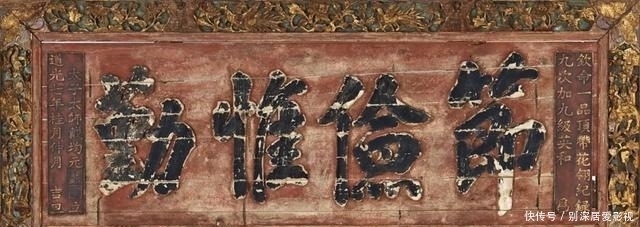 欽命一品頂帶花翎紀錄
九次加九級英和 爲
節儉惟勤
太子太師戴均元
道光七年桂月 吉旦
快传号 / 别深居爱影视